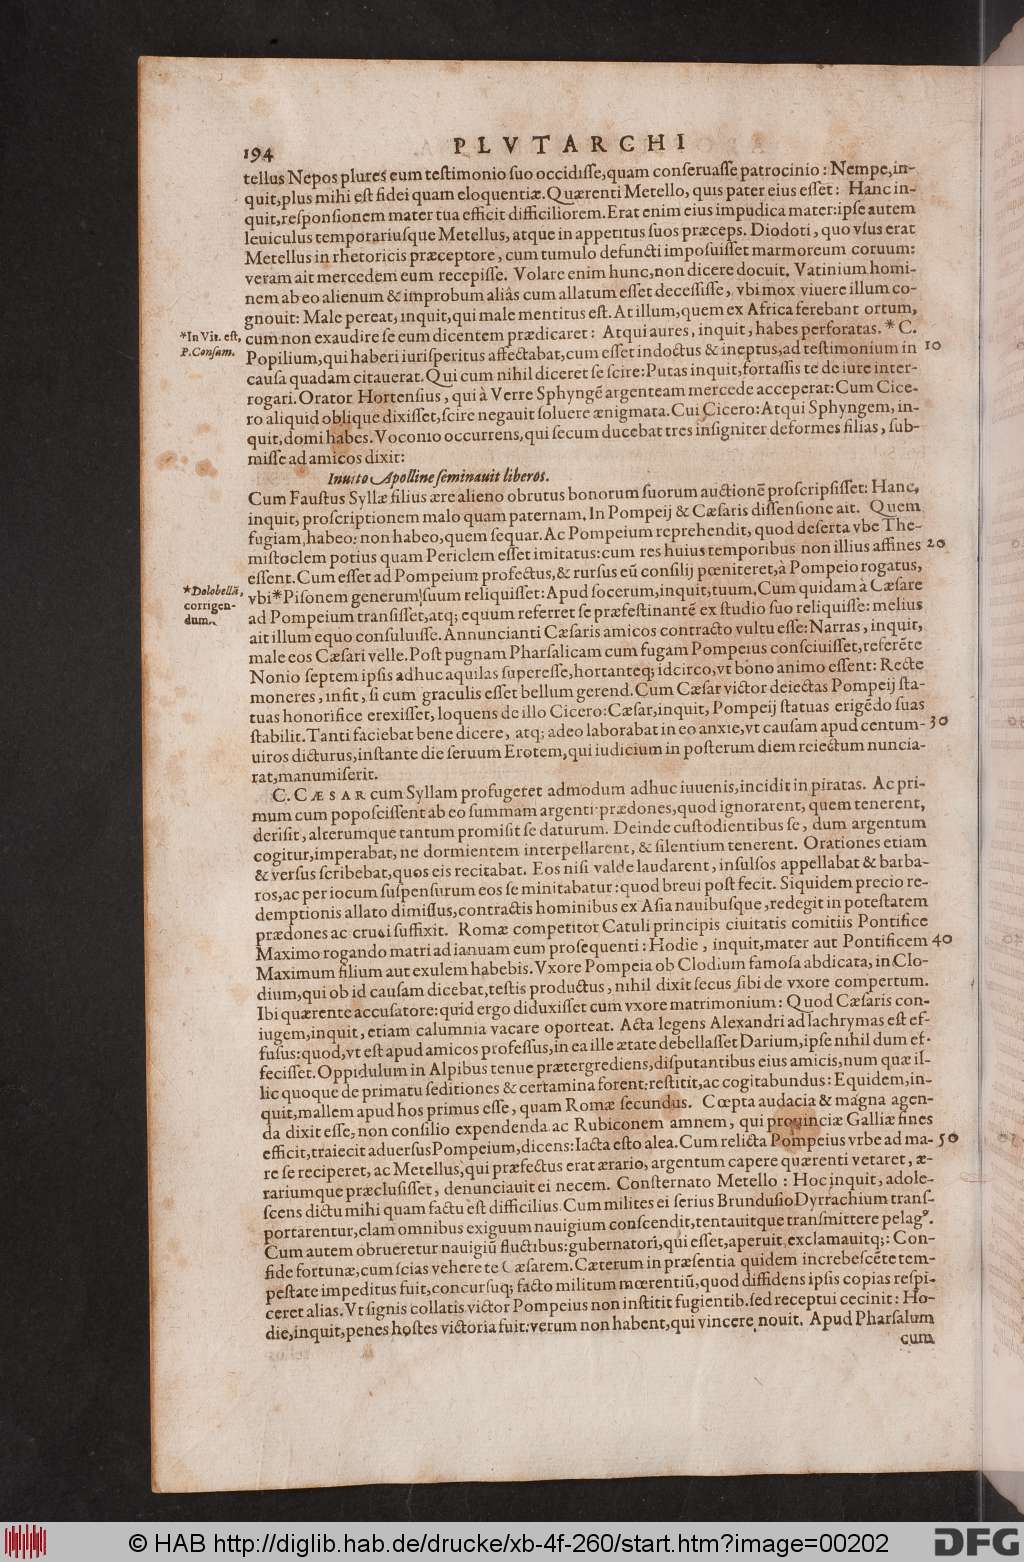 194 PLVTARCHI
tellus Nepos plures eum testimonio suo occidisse,quam conseruasse patrocinio: Nempe,in-
quit,plus mihi est fidei quam eloquentiæ.Quærenti Metello, quis pater eius esset: Hanc in-
quit,responsionem mater tua efficit difficiliorem.Erat enim eius impudica mater:ipse autem
leuiculus temporariusque Metellus, atque in appetitus suos præceps. Diodoti, quo vsus erat
Metellus in rhetoricis præceptore, cum tumulo defuncti imposuisset marmoreum coruum:
veram ait mercedem eum recepisse. Volare enim hunc,non dicere docuit. Vatinium homi-
nem ab eo alienum & improbum aliâs cum allatum esset decessisse, vbi mox viuere illum co-
gnouit: Male pereat, inquit,qui male mentitus est. At illum,quem ex Africa ferebant ortum,
*In Vit. est, P.Consam.
cum non exaudire se eum dicentem prædicaret: Atqui aures, inquit, habes perforatas. * C.
Popilium,qui haberi iurisperitus affectabat,cum esset indoctus & ineptus,ad testimonium in 10
causa quadam citauerat. Qui cum nihil diceret se scire:Putas inquit,fortassis te de iure inter-
rogari.Orator Hortensius, qui à Verre Sphyngẽ argenteam mercede acceperat:Cum Cice-
ro aliquid oblique dixisset,scire negauit soluere ænigmata. Cui Cicero:Atqui Sphyngem, in-
quit,domi habes. Voconio occurrens,qui secum ducebat tres insigniter deformes filias, sub-
misse ad amicos dixit:
Inuito Apolline seminauit liberos.
Cum Faustus Syllæ filius ære alieno obrutus bonorum suorum auctionẽ proscripsisset: Hanc,
inquit, proscriptionem malo quam paternam. In Pompeij & Cæsaris dissensione ait. Quem
fugiam,habeo: non habeo,quem sequar. Ac Pompeium reprehendit, quod deserta vbe The-
mistoclem potius quam Periclem esset imitatus:cum res huius temporibus non illius affines 20
essent. Cum esset ad Pompeium profectus,& rursus eũ consilij pœniteret,à Pompeio rogatus,
*Dolobellã, corrigen-dum.
vbi*Pisonem generum suum reliquisset: Apud socerum,inquit,tuum. Cum quidam à Cæsare
ad Pompeium transisset,atq; equum referret se præfestinantẽ ex studio suo reliquisse: melius
ait illum equo consuluisse. Annuncianti Cæsaris amicos contracto vultu esse: Narras, inquit,
male eos Cæsari velle. Post pugnam Pharsalicam cum fugam Pompeius consciuisset,referẽte
Nonio septem ipsis adhuc aquilas superesse,hortanteq; idcirco,vt bono animo essent: Recte
moneres, infit, si cum graculis esset bellum gerend. Cum Cæsar victor deiectas Pompeij sta-
tuas honorifice erexisset, loquens de illo Cicero:Cæsar,inquit, Pompeij statuas erigẽdo suas
stabilit. Tanti faciebat bene dicere, atq; adeo laborabat in eo anxie,vt causam apud centum- 30
uiros dicturus,instante die seruum Erotem,qui iudicium in posterum diem reiectum nuncia-
rat,manumiserit.
C. CÆSAR cum Syllam profugeret admodum adhuc iuuenis,incidit in piratas. Ac pri-
mum cum poposcissent ab eo summam argenti prædones,quod ignorarent, quem tenerent,
derisit, alterumque tantum promisit se daturum. Deinde custodientibus se, dum argentum
cogitur,imperabat, ne dormientem interpellarent, & silentium tenerent. Orationes etiam
& versus scribebat,quos eis recitabat. Eos nisi valde laudarent, insulsos appellabat & barba-
ros,ac per iocum suspensurum eos se minitabatur:quod breui post fecit. Siquidem precio re-
demptionis allato dimissus,contractis hominibus ex Asia nauibusque,redegit in potestatem
prædones ac cruci suffixit. Romæ competitor Catuli principis ciuitatis comitiis Pontifice
Maximo rogando matri ad ianuam eum prosequenti: Hodie, inquit,mater aut Pontificem 40
Maximum filium aut exulem habebis. Vxore Pompeia ob Clodium famosa abdicata, in Clo-
dium,qui ob id causam dicebat,testis productus, nihil dixit secus sibi de vxore compertum.
Ibi quærente accusatore:quid ergo diduxisset cum vxore matrimonium: Quod Cæsaris con-
iugem,inquit, etiam calumnia vacare oporteat. Acta legens Alexandri ad lachrymas est ef-
fusus:quod,vt est apud amicos professus,in ea ille ætate debellasset Darium,ipse nihil dum ef-
fecisset. Oppidulum in Alpibus tenue prætergrediens,disputantibus eius amicis,num quæ il-
lic quoque de primatu seditiones & certamina forent:restitit,ac cogitabundus: Equidem,in-
quit,mallem apud hos primus esse, quam Romæ secundus. Cœpta audacia & magna agen-
da dixit esse, non consilio expendenda ac Rubiconem amnem, qui prouinciæ Galliæ fines
efficit,traiecit aduersus Pompeium,dicens:Iacta esto alea. Cum relicta Pompeius vrbe ad ma- 50
re se reciperet, ac Metellus,qui præfectus erat ærario, argentum capere quærenti vetaret, æ-
rariumque præclusisset, denunciauit ei necem. Consternato Metello: Hoc inquit, adole-
scens dictu mihi quam factu est difficilius. Cum milites ei serius Brundusio Dyrrachium trans-
portarentur,clam omnibus exiguum nauigium conscendit,tentauitque transmittere pelagꝰ.
Cum autem obrueretur nauigiũ fluctibus:gubernatori,qui esset,aperuit exclamauitq;: Con-
fide fortunæ,cum scias vehere te Cæsarem. Cæterum in præsentia quidem increbescẽte tem-
pestate impeditus fuit,concursuq; facto militum mœrentiũ,quod diffidens ipsis copias respi-
ceret alias. Vt signis collatis victor Pompeius non institit fugientib.sed receptui cecinit: Ho-
die,inquit,penes hostes victoria fuit:verum non habent,qui vincere nouit. Apud Pharsalum
cum
© HAB http://diglib.hab.de/drucke/xb-4f-260/start.htm?image=00202 DFG